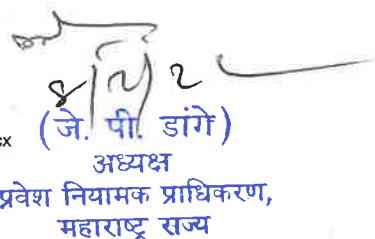 cx
(जे. पी. डांगे)
अध्यक्ष
प्रवेश नियामक प्राधिकरण,
महाराष्ट्र राज्य